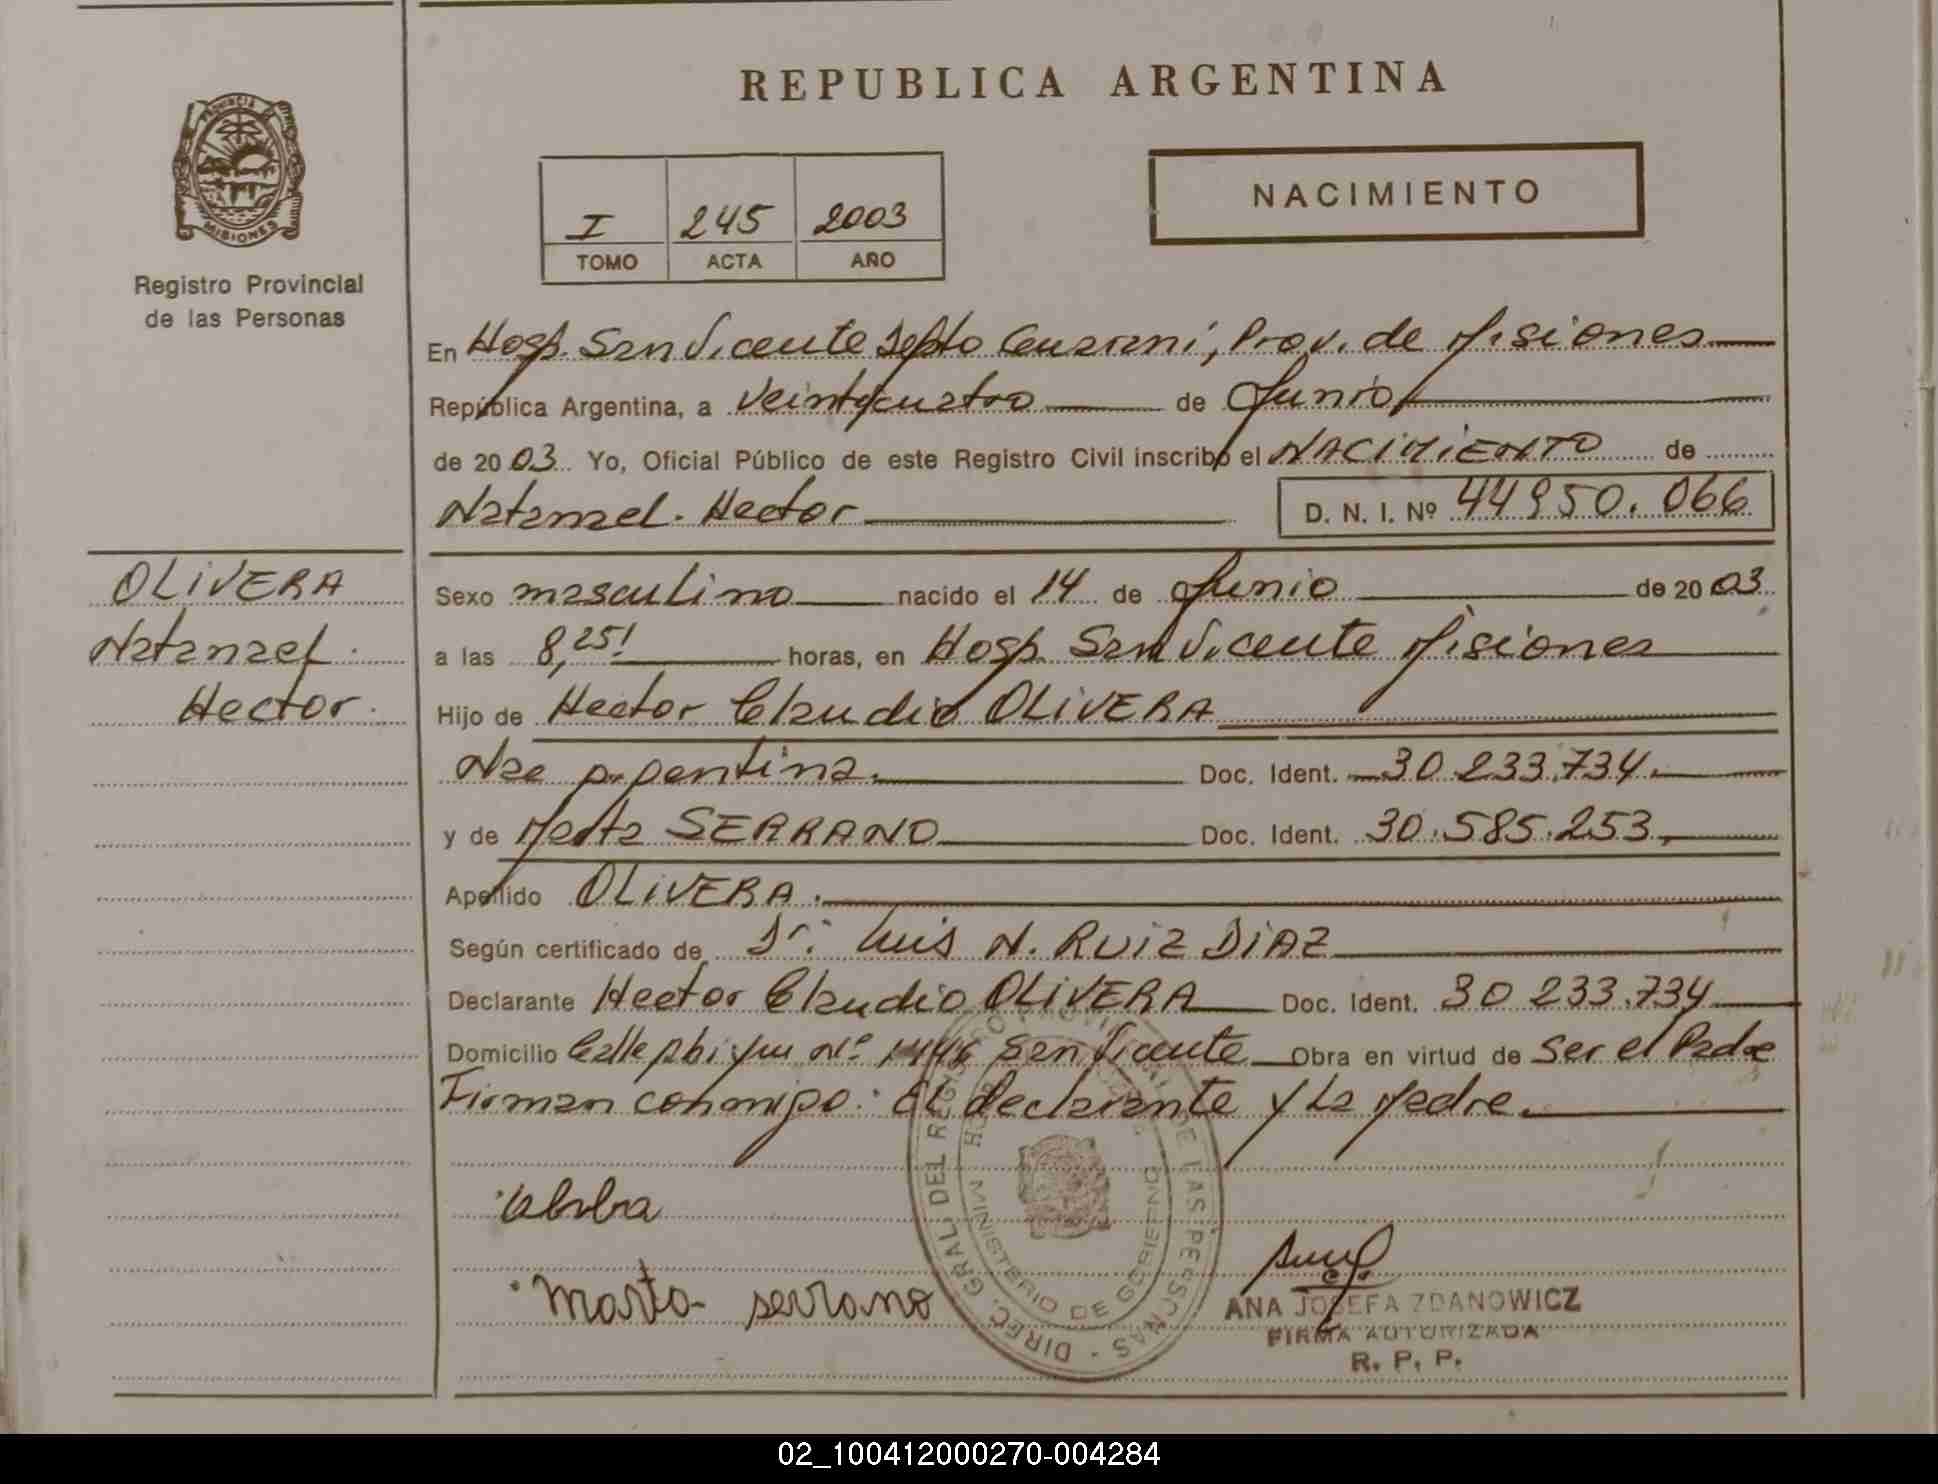 REPUBLICA ARGENTINA
PROVINCIA
MISIONES
Registro Provincial
de las Personas
I 245 2003
TOMO ACTA AÑO
NACIMIENTO
En Hosp. San Vicente Depto Guarani, Prov. de Misiones
República Argentina, a veinticuatro de Junio
de 2003 Yo, Oficial Público de este Registro Civil inscribo el NACIMIENTO de
Natanael Hector D. N. I. Nº 44950.066
OLIVERA
Natanael
Hector
Sexo masculino nacido el 14 de Junio de 2003
a las 8,25' horas, en Hosp. San Vicente Misiones
Hijo de Hector Claudio OLIVERA
Nac Argentina. Doc. Ident. 30.233.734.
y de Marta SERRANO Doc. Ident. 30.585.253
Apellido OLIVERA.
Según certificado de Dr: Luis N. RUIZ DIAZ
Declarante Hector Claudio OLIVERA Doc. Ident. 30 233.734
Domicilio Calle Nº San Vicente Obra en virtud de Ser el Padre
Firman conmigo: El declarante y La Madre.
DIREC. GRAL. DEL REGISTRO PROVINCIAL DE LAS PERSONAS
MINISTERIO DE GOBIERNO
Marta serrano
ANA JOSEFA ZDANOWICZ
FIRMA AUTORIZADA
R. P. P.
02_100412000270-004284